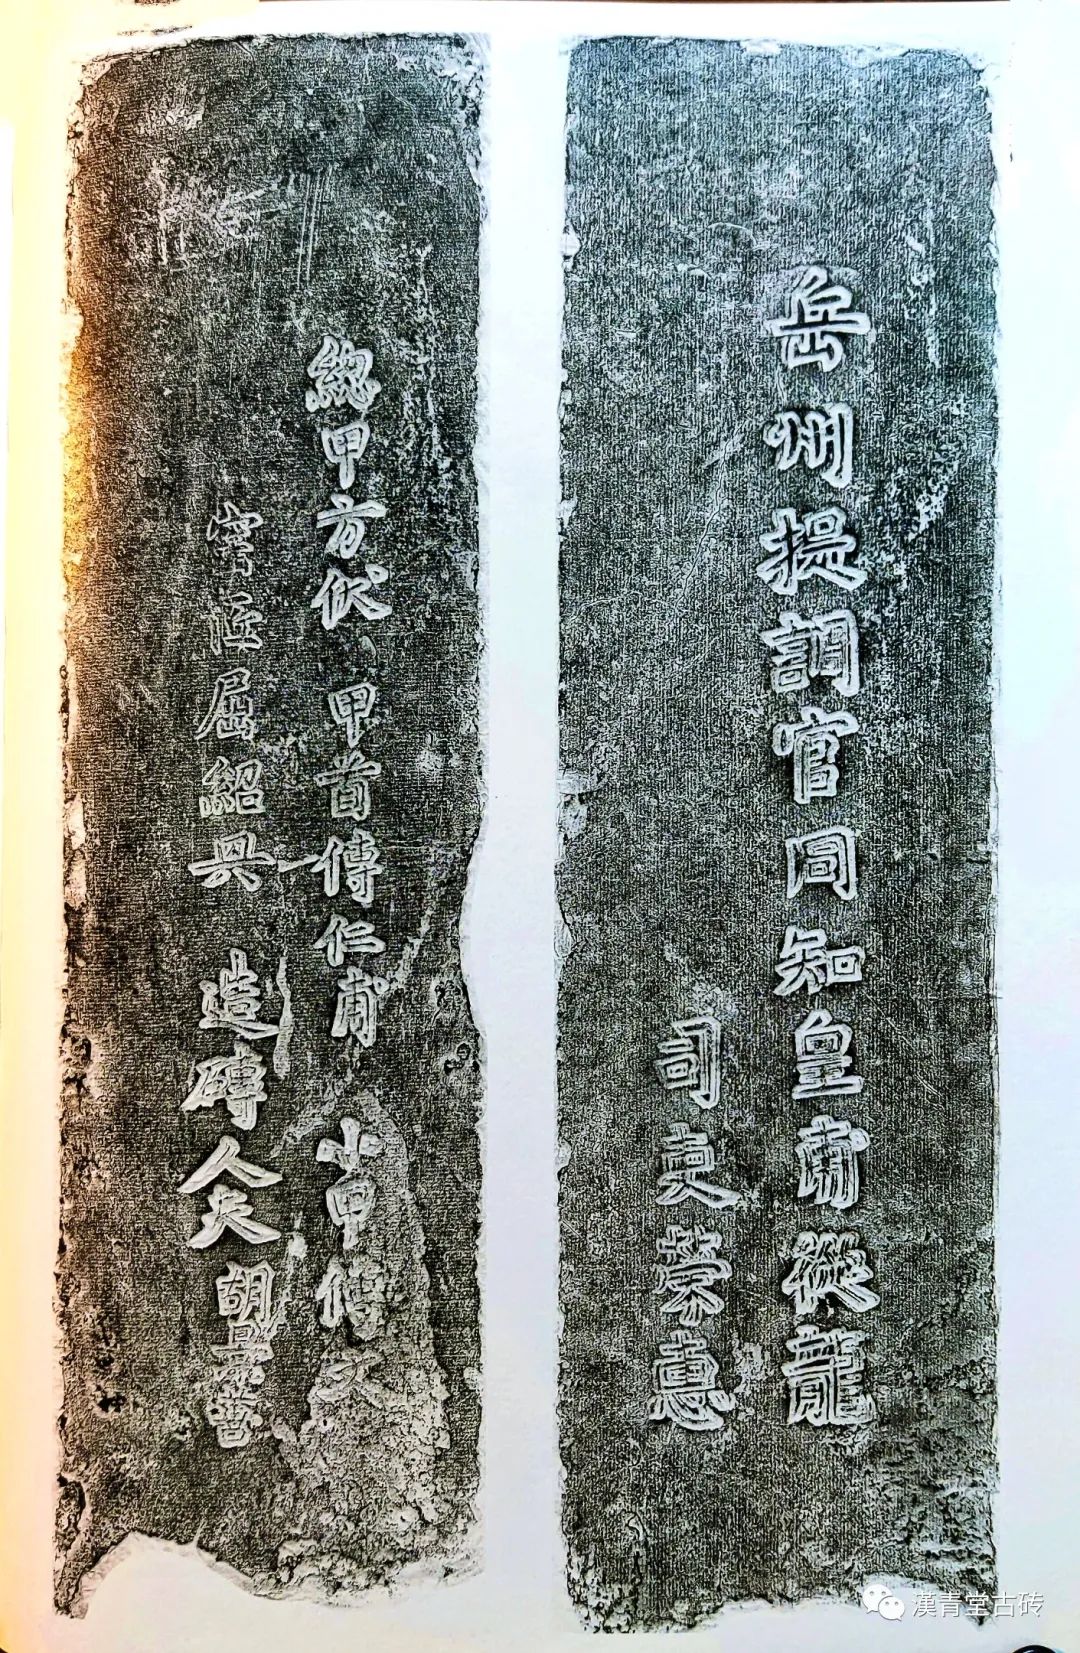 岳州提調官同知皇甫從龍
司吏嚴惠
總甲方伏 甲首傅仁甫 小甲傅文
窑匠屈紹興 造磚人夫胡
漢青堂古砖